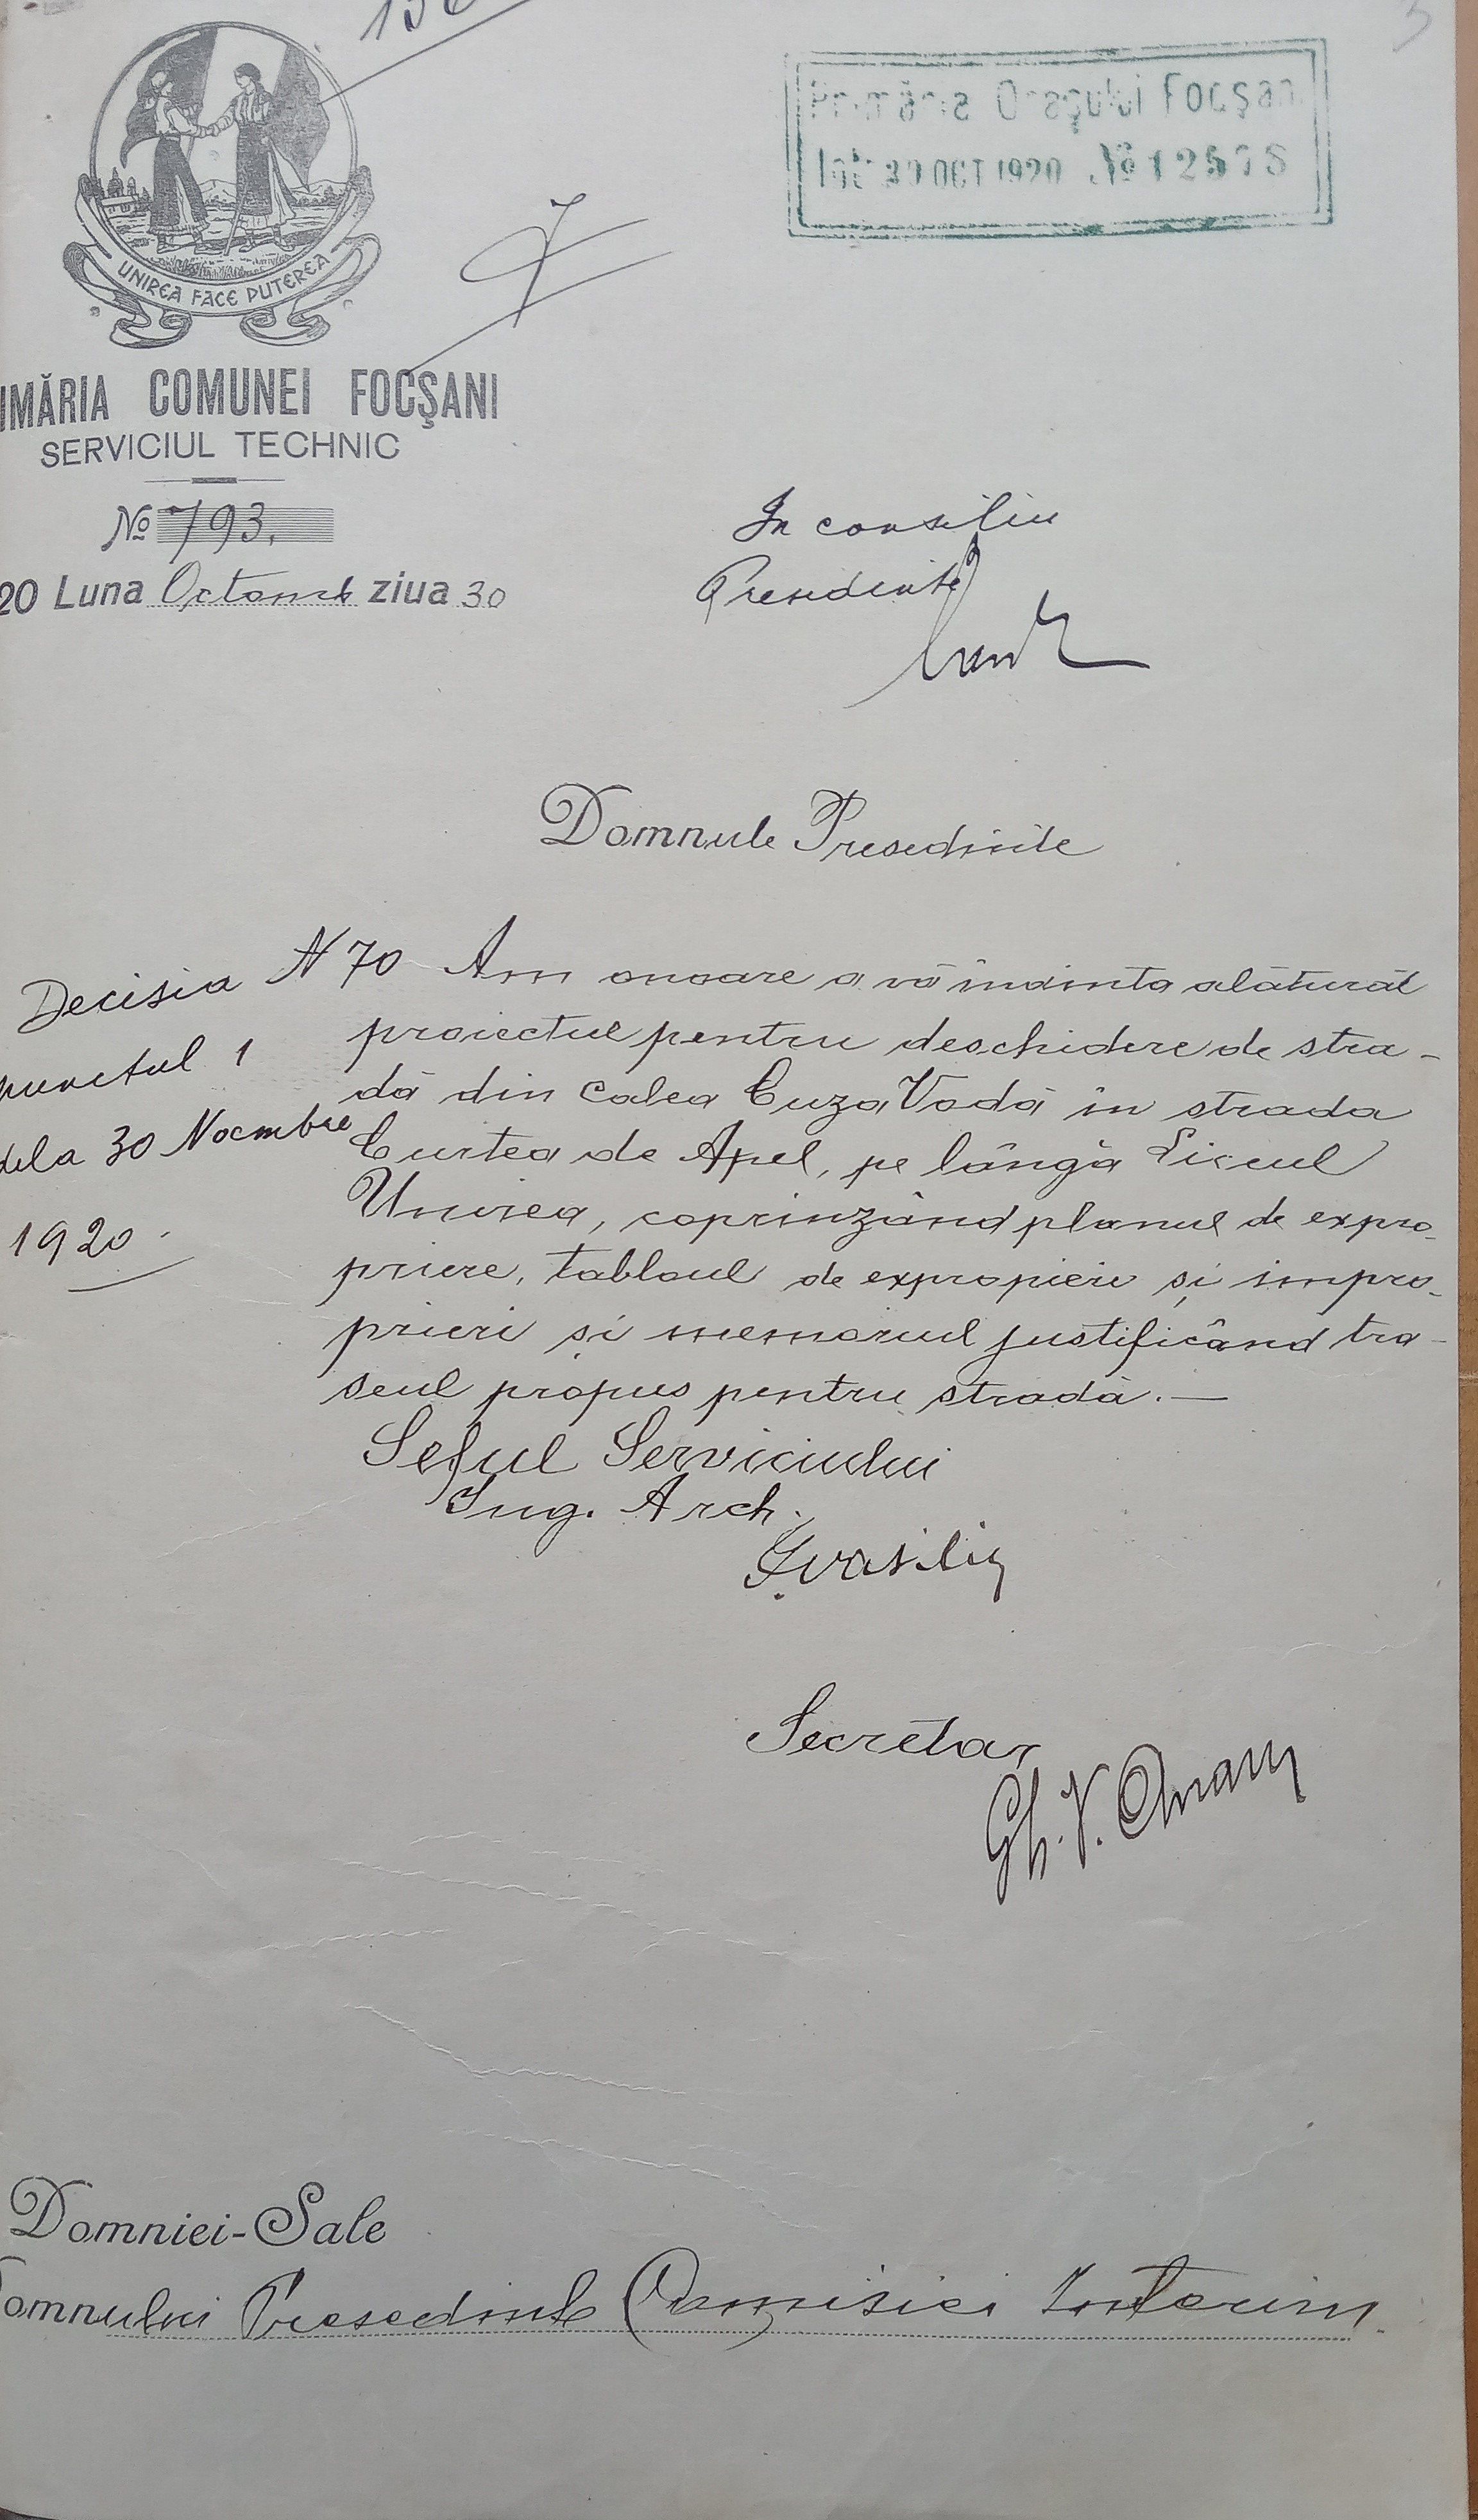 Primăria Orașului Focșani
Intr 30 OCT 1920 No 12575
UNIREA FACE PUTEREA
IMĂRIA COMUNEI FOCŞANI
SERVICIUL TECHNIC
No 793.
20 Luna Octomb ziua 30
In consiliu
Presidinte
Domnule Presedinte
Decisia N 70
punctul 1
dela 30 Noembre
1920.
Am onoare a vă înainta alăturat
proiectul pentru deschidere de stra-
dă din Calea Cuza Vodă în strada
Curtea de Apel, pe lângă Liceul
Unirea, coprinzând planul de expro-
priere, tabloul de expropieri și impro-
prieri și memoriul justificând tra-
seul propus pentru stradă.—
Seful Serviciului
Ing. Arch.
Secretar
Gh. V.
Domniei-Sale
omnului Presedinte Comisiei Interim.